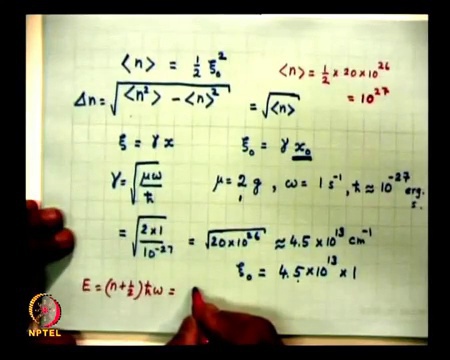 <n> = 1/2 ξ₀²
<n> = 1/2 × 20 × 10²⁶
= 10²⁷
Δn = √(<n²> − <n>²) = √<n>
ξ = γx ξ₀ = γ x₀
γ = √(μω/ħ) μ = 2 g, ω = 1 s⁻¹, ħ ≈ 10⁻²⁷ erg.s.
= √((2×1)/10⁻²⁷) = √(20×10²⁶) ≈ 4.5 × 10¹³ cm⁻¹
ξ₀ = 4.5 × 10¹³ × 1
E = (n + 1/2) ħω =
NPTEL